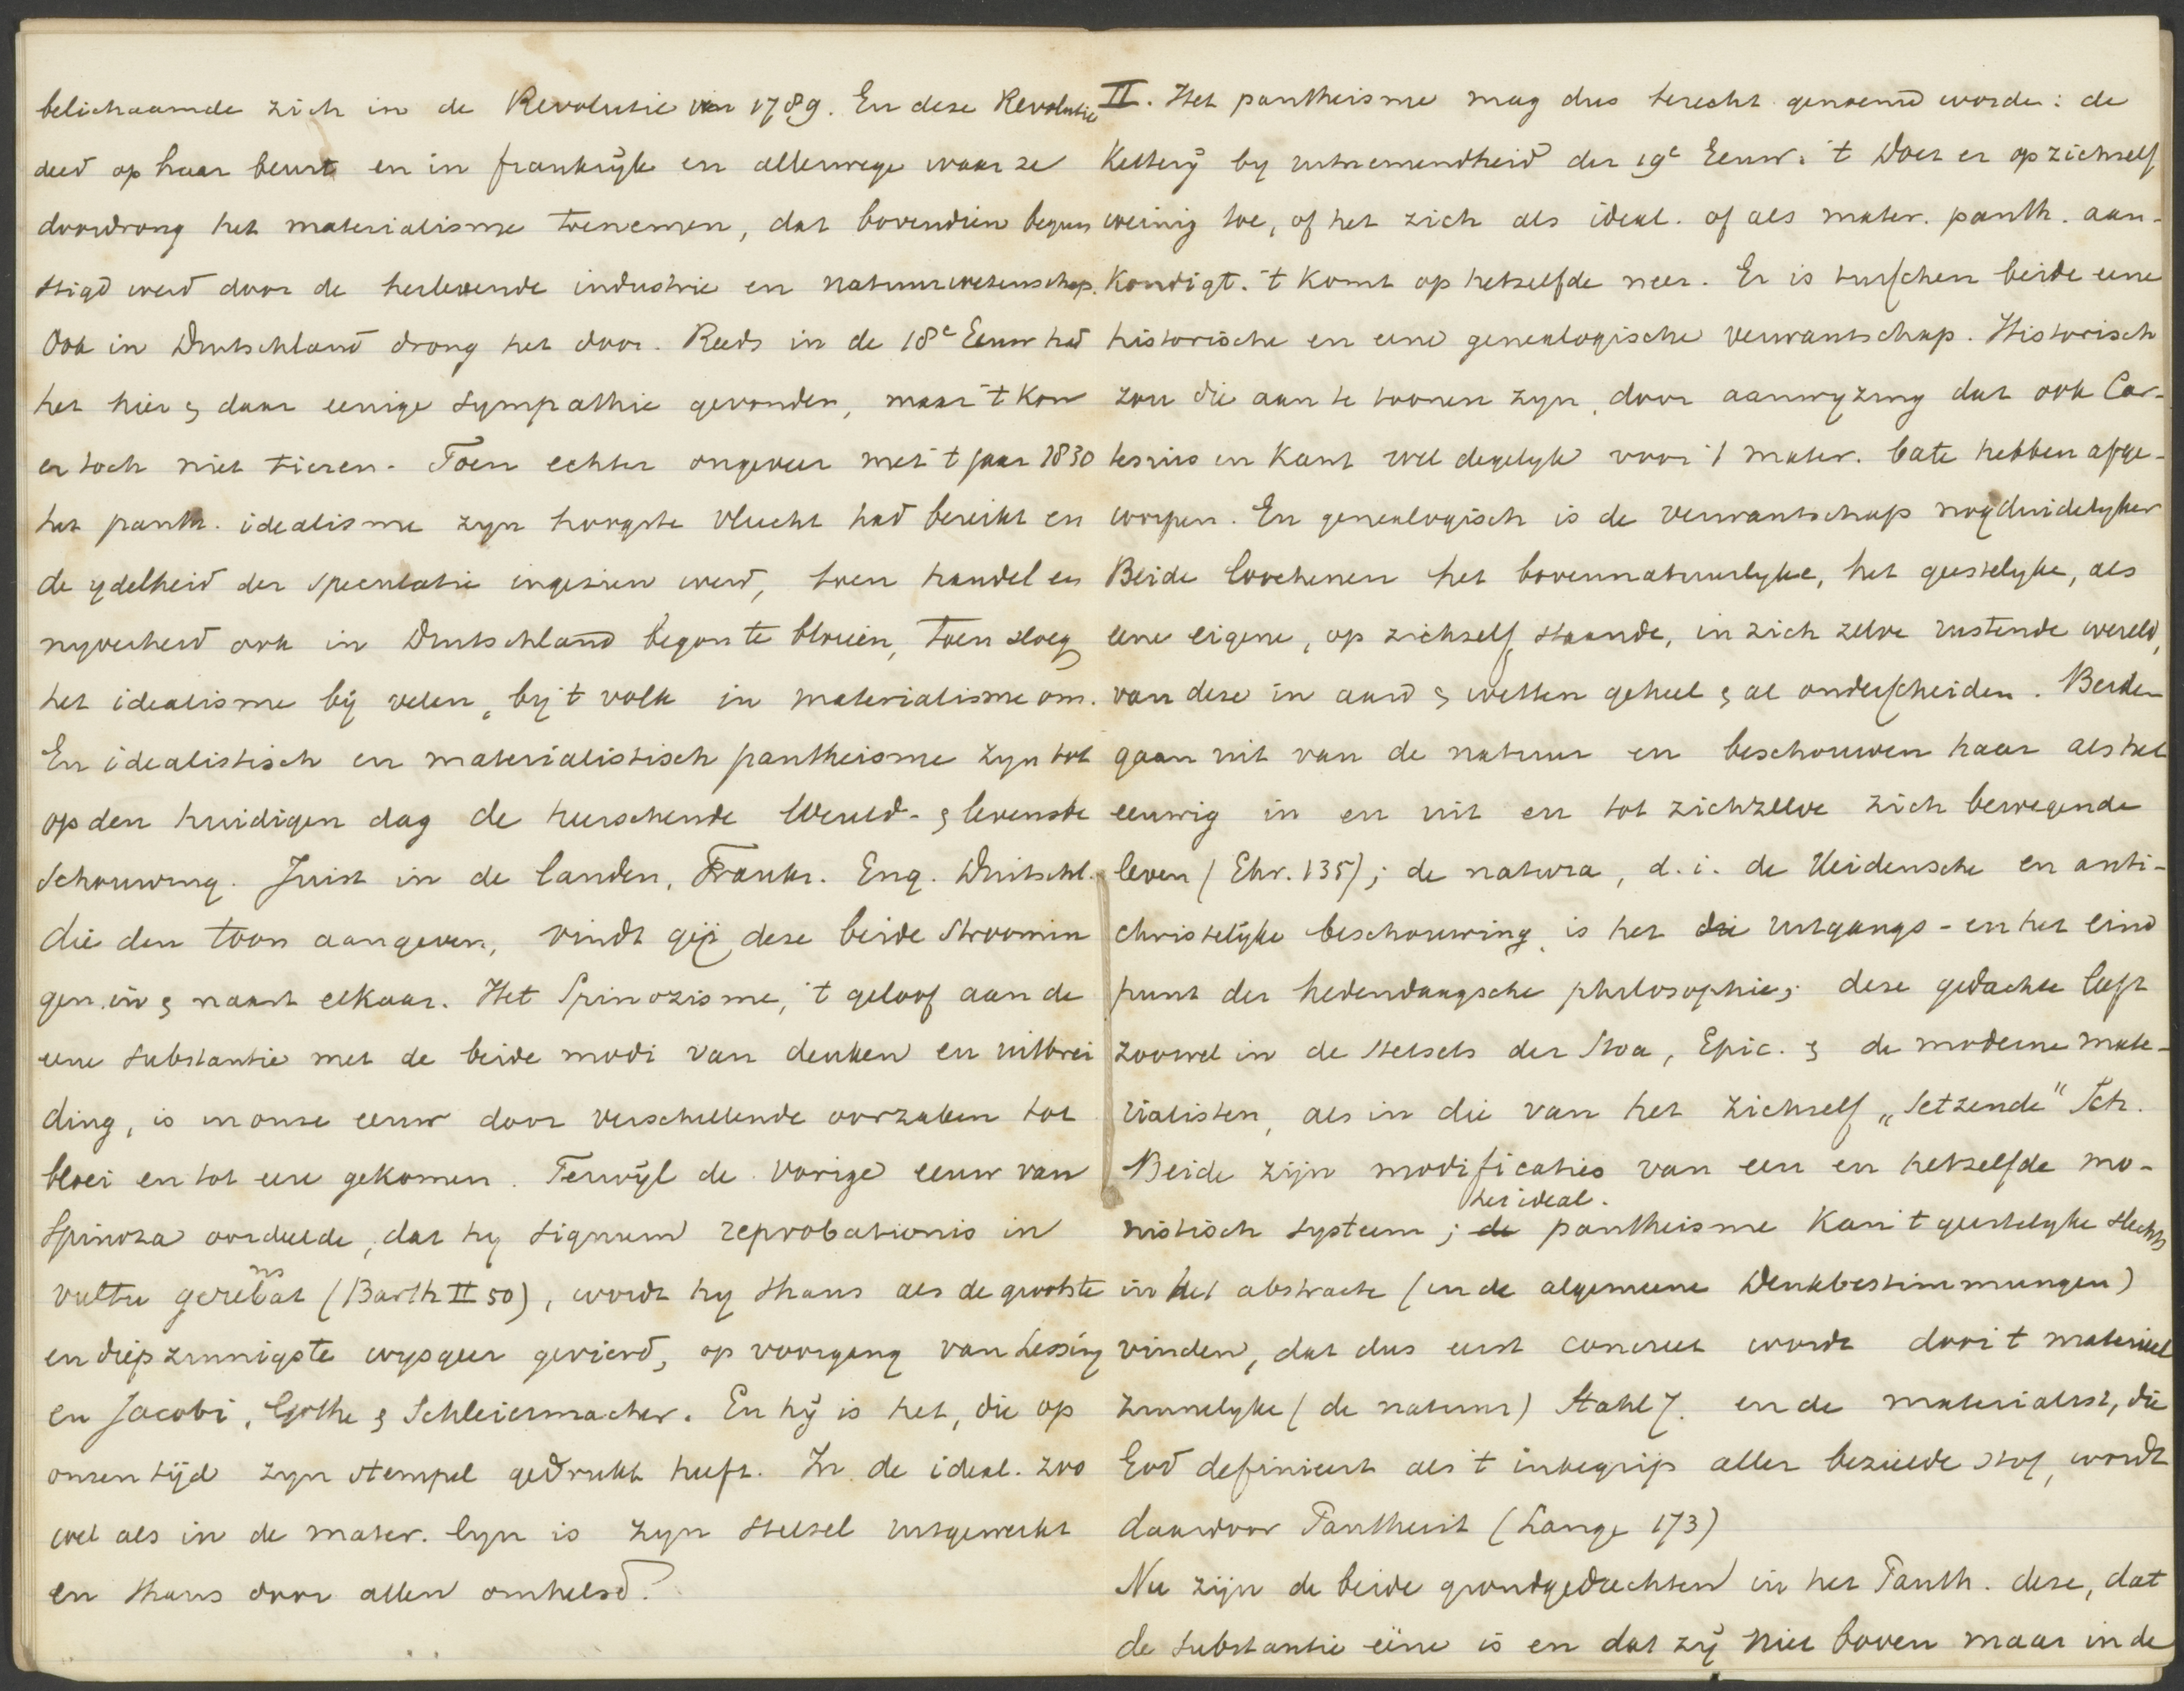 belichaamde zich in de Revolutie van 1789. En deze Revolutie
deed op haar beurt en in frankrijk en allerwege waar ze
doordrong het materialisme toenemen, dat bovendien begun
stigd werd door de herlevende industrie en natuurwetenschap.
Ook in Duitschland drong het door. Reeds in de 18e Eeuw had
het hier & daar eenige sympathie gevonden, maar 't kon
er toch niet tieren. Toen echter ongeveer met 't jaar 1830
het panth. idealisme zyn hoogste vlucht had bereikt en
de ydelheid der speculatie ingezien werd, toen handel en
nyverheid ook in Duitschland begon te bloeien, toen sloeg
het idealisme bij velen, bij 't volk in materialisme om.
En idealistisch en materialistisch pantheisme zyn tot
op den huidigen dag de heerschende Wereld- & levensbe
schouwing. Juist in de landen, Frankr. Eng. Duitschl.
die den toon aangeven, vindt gij deze beide Stroomin
gen in & naast elkaar. Het Spinozisme, 't geloof aan de
eene substantie met de beide modi van denken en uitbrei
ding, is in onze eeuw door verschillende oorzaken tot
bloei en tot eere gekomen. Terwyl de vorige eeuw van
Spinoza oordeelde, dat hy signum reprobationis in
ns
vultu gerebat (Barth II 50), wordt hy thans als de grootste
en diepzinnigste wysgeer gevierd, op voorgang van Lessing
en Jacobi, Göthe & Schleiermacher. En hij is het, die op
onzen tijd zyn stempel gedrukt heeft. In de ideal. zoo
wel als in de mater. lyn is zyn stelsel uitgewerkt
en thans door allen omhelsd.
II. Het pantheisme mag dus terecht genoemd worden: de
Ketterij by uitnemendheid der 19e Eeuw. 't Doet er op zichself
weinig toe, of het zich als ideal. of als mater. panth. aan-
kondigt. 't Komt op hetzelfde neer. Er is tusschen beide eene
historische en eene genealogische verwantschap. Historisch
zou die aan te toonen zyn, door aanwyzing dat ook Car-
tesius en Kant wel degelyk voor 't mater. bate hebben afge-
worpen. En genealogisch is de verwantschap nog duidelyker
Beide loochenen het bovennatuurlyke, het geestelyke, als
eene eigene, op zichself staande, in zich zelve rustende wereld,
van deze in aard & wetten geheel & al onderscheiden. Beiden
gaan uit van de natuur en beschouwen haar als het
eeuwig in en uit en tot zichzelve zich bewegende
leven (Ehr. 135); de natura, d.i. de Heidensche en anti-
christelijke beschouwing is het die uitgangs- en het eind
punt der hedendaagsche philosophie; deze gedachte leeft
zoowel in de stelsels der Stoa, Epic. & de moderne mate-
rialisten, als in die van het zichself „Setzende" Ich.
Beide zijn modificaties van een en hetzelfde mo-
het ideal.
nistisch systeem; de pantheisme kan 't geestelyke slechts
in het abstracte (in de algemeene Denkbestimmungen)
vinden, dat dus eerst concreet wordt door 't materieel
zinnelyke (de natuur) Stahl 7. en de materialist, die
God definieert als 't inbegrip aller bezielde stof, wordt
daardoor Pantheist (Lange 173)
Nu zijn de beide grondgedachten in het Panth. deze, dat
de substantie eéne is en dat zij niet boven maar in de